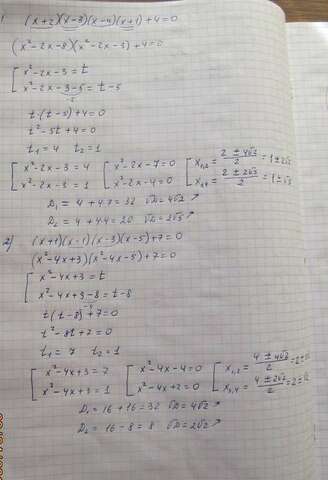 1 (x+2)(x-3)(x-4)(x+1)+4=0
(x²-2x-8)(x²-2x-3)+4=0
x²-2x-3=t
x²-2x-3-5=t-5
-5
t·(t-5)+4=0
t²-5t+4=0
t₁=4 t₂=1
x²-2x-3=4 x²-2x-7=0 x₁,₂=(2±4√2)/2=1±2√2
x²-2x-3=1 x²-2x-4=0 x₃,₄=(2±2√5)/2=1±√5
D₁=4+4·7=32 √D=4√2
D₂=4+4·4=20 √D=2√5
2) (x+1)(x-1)(x-3)(x-5)+7=0
(x²-4x+3)(x²-4x-5)+7=0
x²-4x+3=t
x²-4x+3-8=t-8
-5
t(t-8)+7=0
t²-8t+7=0
t₁=7 t₂=1
x²-4x+3=7 x²-4x-4=0 x₁,₂=(4±4√2)/2=2±
x²-4x+3=1 x²-4x+2=0 x₃,₄=(4±2√2)/2=2±√2
D₁=16+16=32 √D=4√2
D₂=16-8=8 √D=2√2